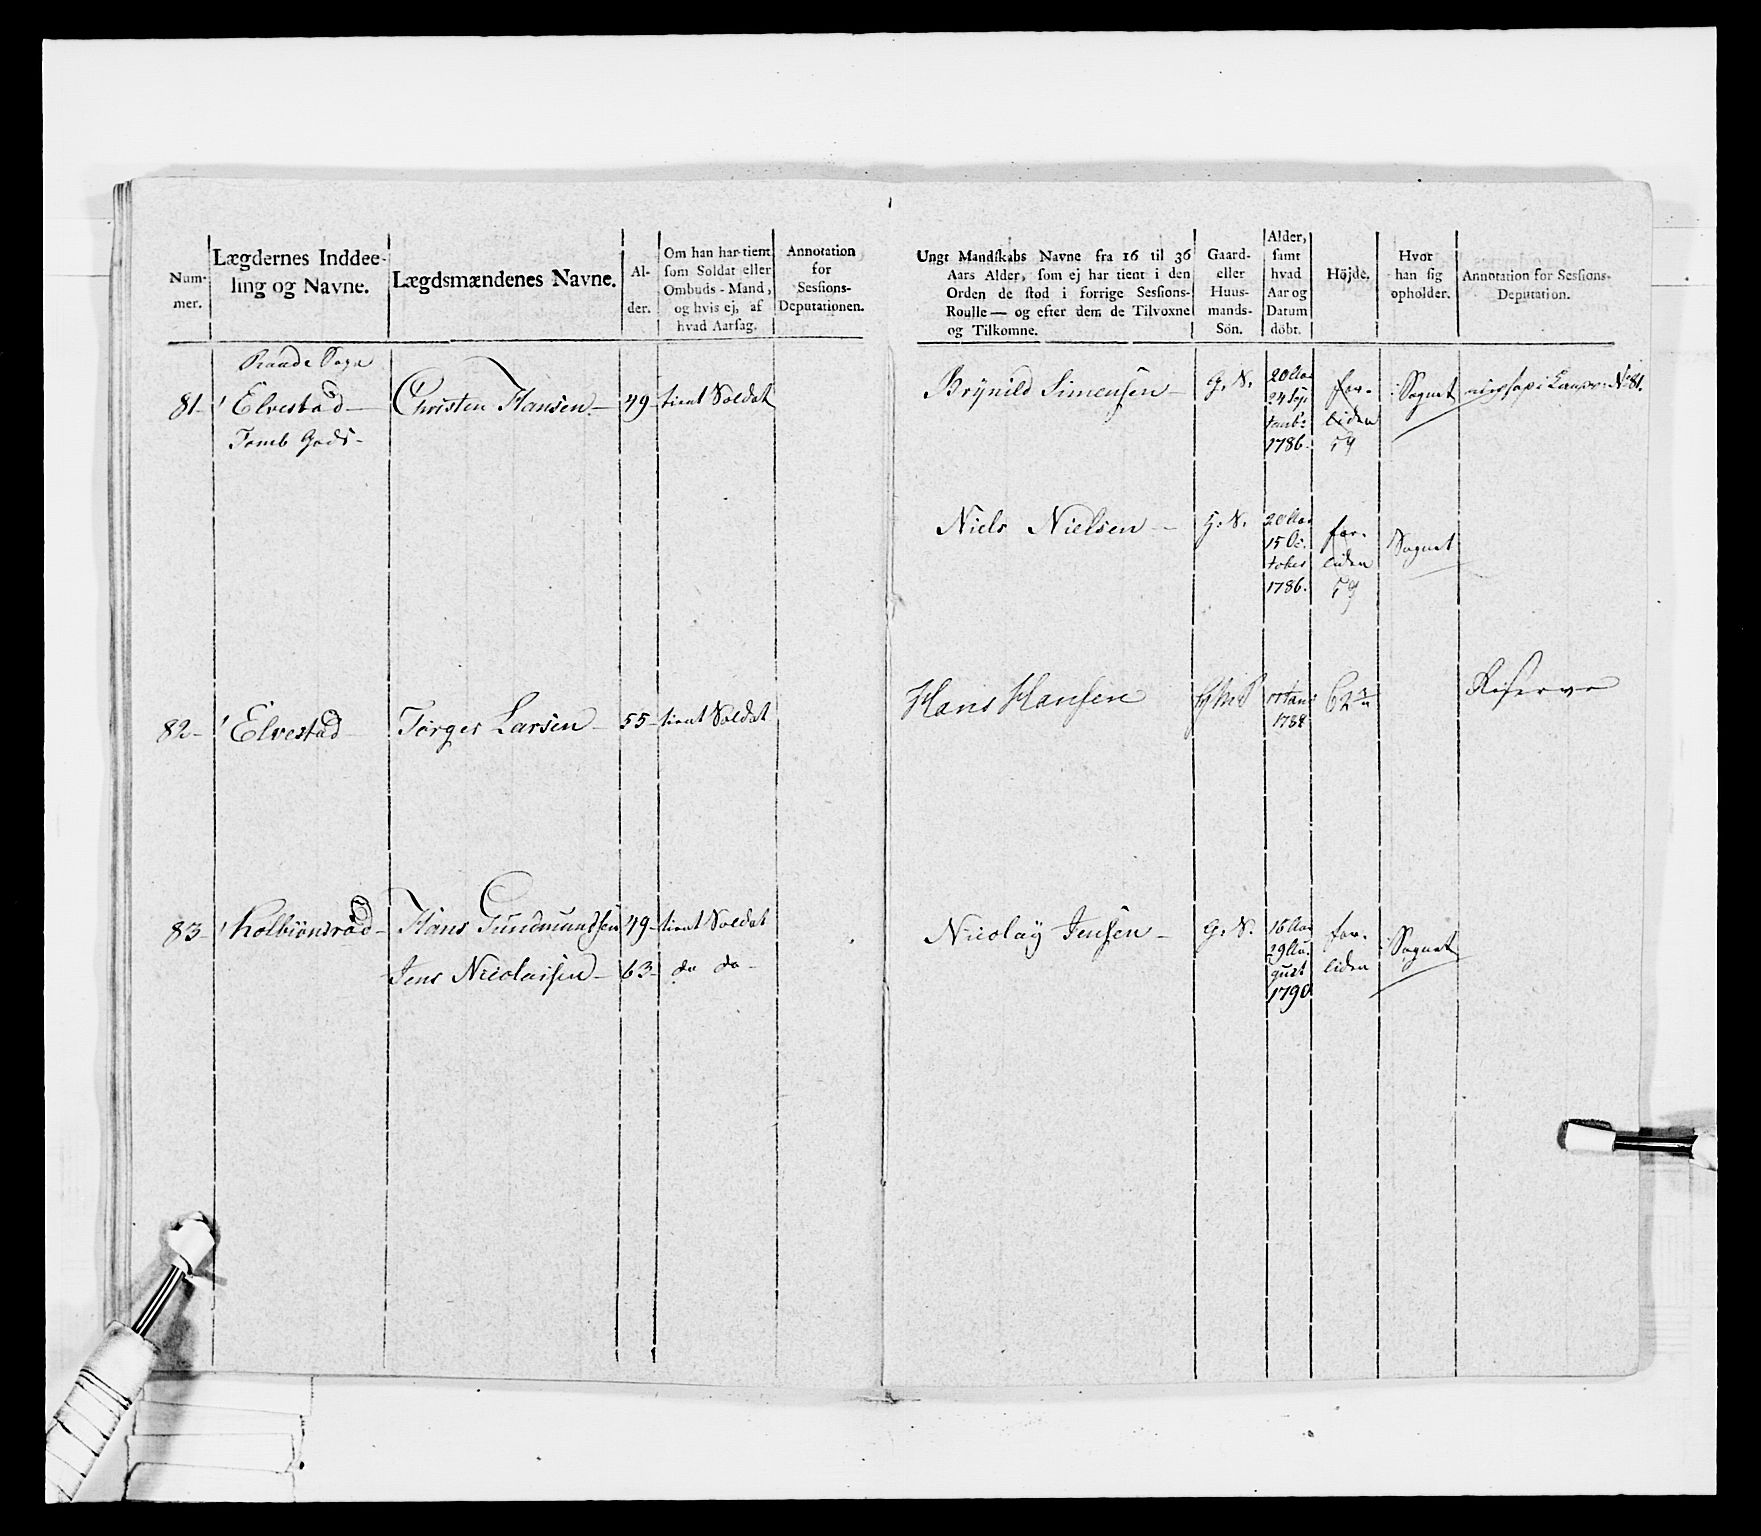 Num-
mer.
Lægdernes Inddee-
ling og Navne.
Lægdsmændenes Navne.
Al-
der.
Om han har tient
som Soldat eller
Ombuds-Mand,
og hvis ej, af
hvad Aarsag.
Annotation
for
Sessions-
Deputationen.
Raade Sogn
81- Elvestad- Christen Hansen- 49- tient Soldat
Tomb Gods-
82- Elvestad- Torger Larsen- 55- tient Soldat
83- Kolbiønsrød- Hans Gundmundsen 49- tient Soldat
Jens Nicolaisen- 63- do do-
Ungt Mandskabs Navne fra 16 til 36
Aars Alder, som ej har tient i den
Orden de stod i forrige Sessions-
Roulle — og efter dem de Tilvoxne
og Tilkomne.
Gaard-
eller
Huus-
mands-
Sön.
Alder,
samt
hvad
Aar og
Datum
döbt.
Höjde.
Hvor
han sig
opholder.
Annotation for Sessions-
Deputation.
Brynild Simensen- G. S. 20 Aar
24 Sep-
temb:
1786.
for-
liden
59
i Sognet
No 81.
Niels Nielsen- G. S. 20 Aar
15 Oc-
tober
1786.
for-
liden
59
Sognet
Hans Hansen
1788
62
Reserve
Nicolay Jensen- G. S. 16 Aar
29 Au-
gust
1790
for-
liden
i Sognet